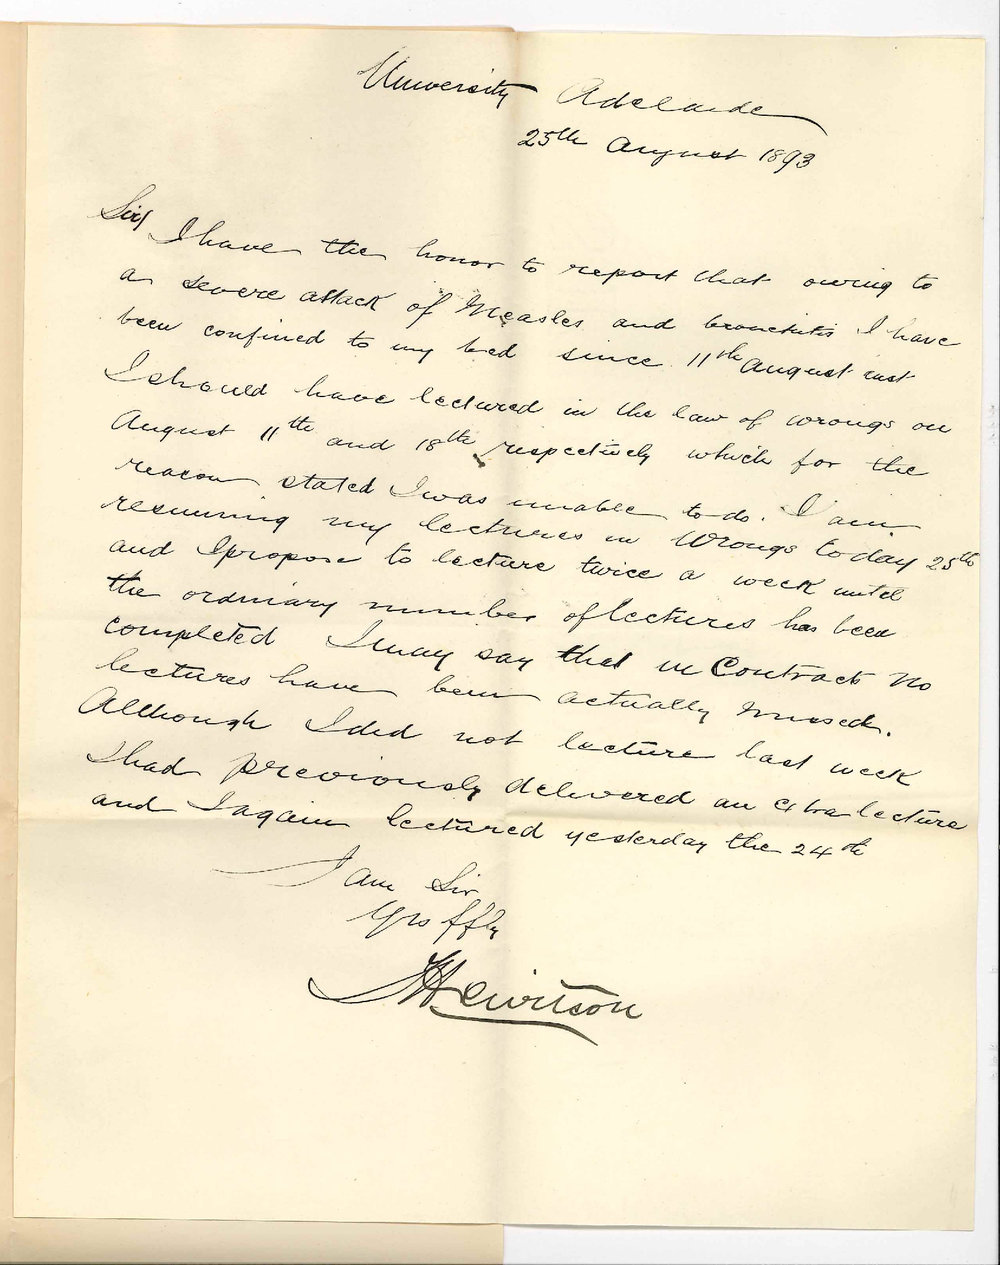 University Adelaide
25th August 1893
Sir/
I have the honor to report that owing to
a severe attack of Measles and bronchitis I have
been confined to my bed since 11th August inst
I should have lectured in the law of wrongs on
August 11th and 18th respectively which for the
reason stated I was unable to do. I am
resuming my lectures in Wrongs today 25th
and I propose to lecture twice a week until
the ordinary number of lectures has been
completed I may say that in Contracts no
lectures have been actually missed.
Although I did not lecture last week
I had previously delivered an extra lecture
and I again lectured yesterday the 24th
I am Sir
Yrs ffly
Hewitson